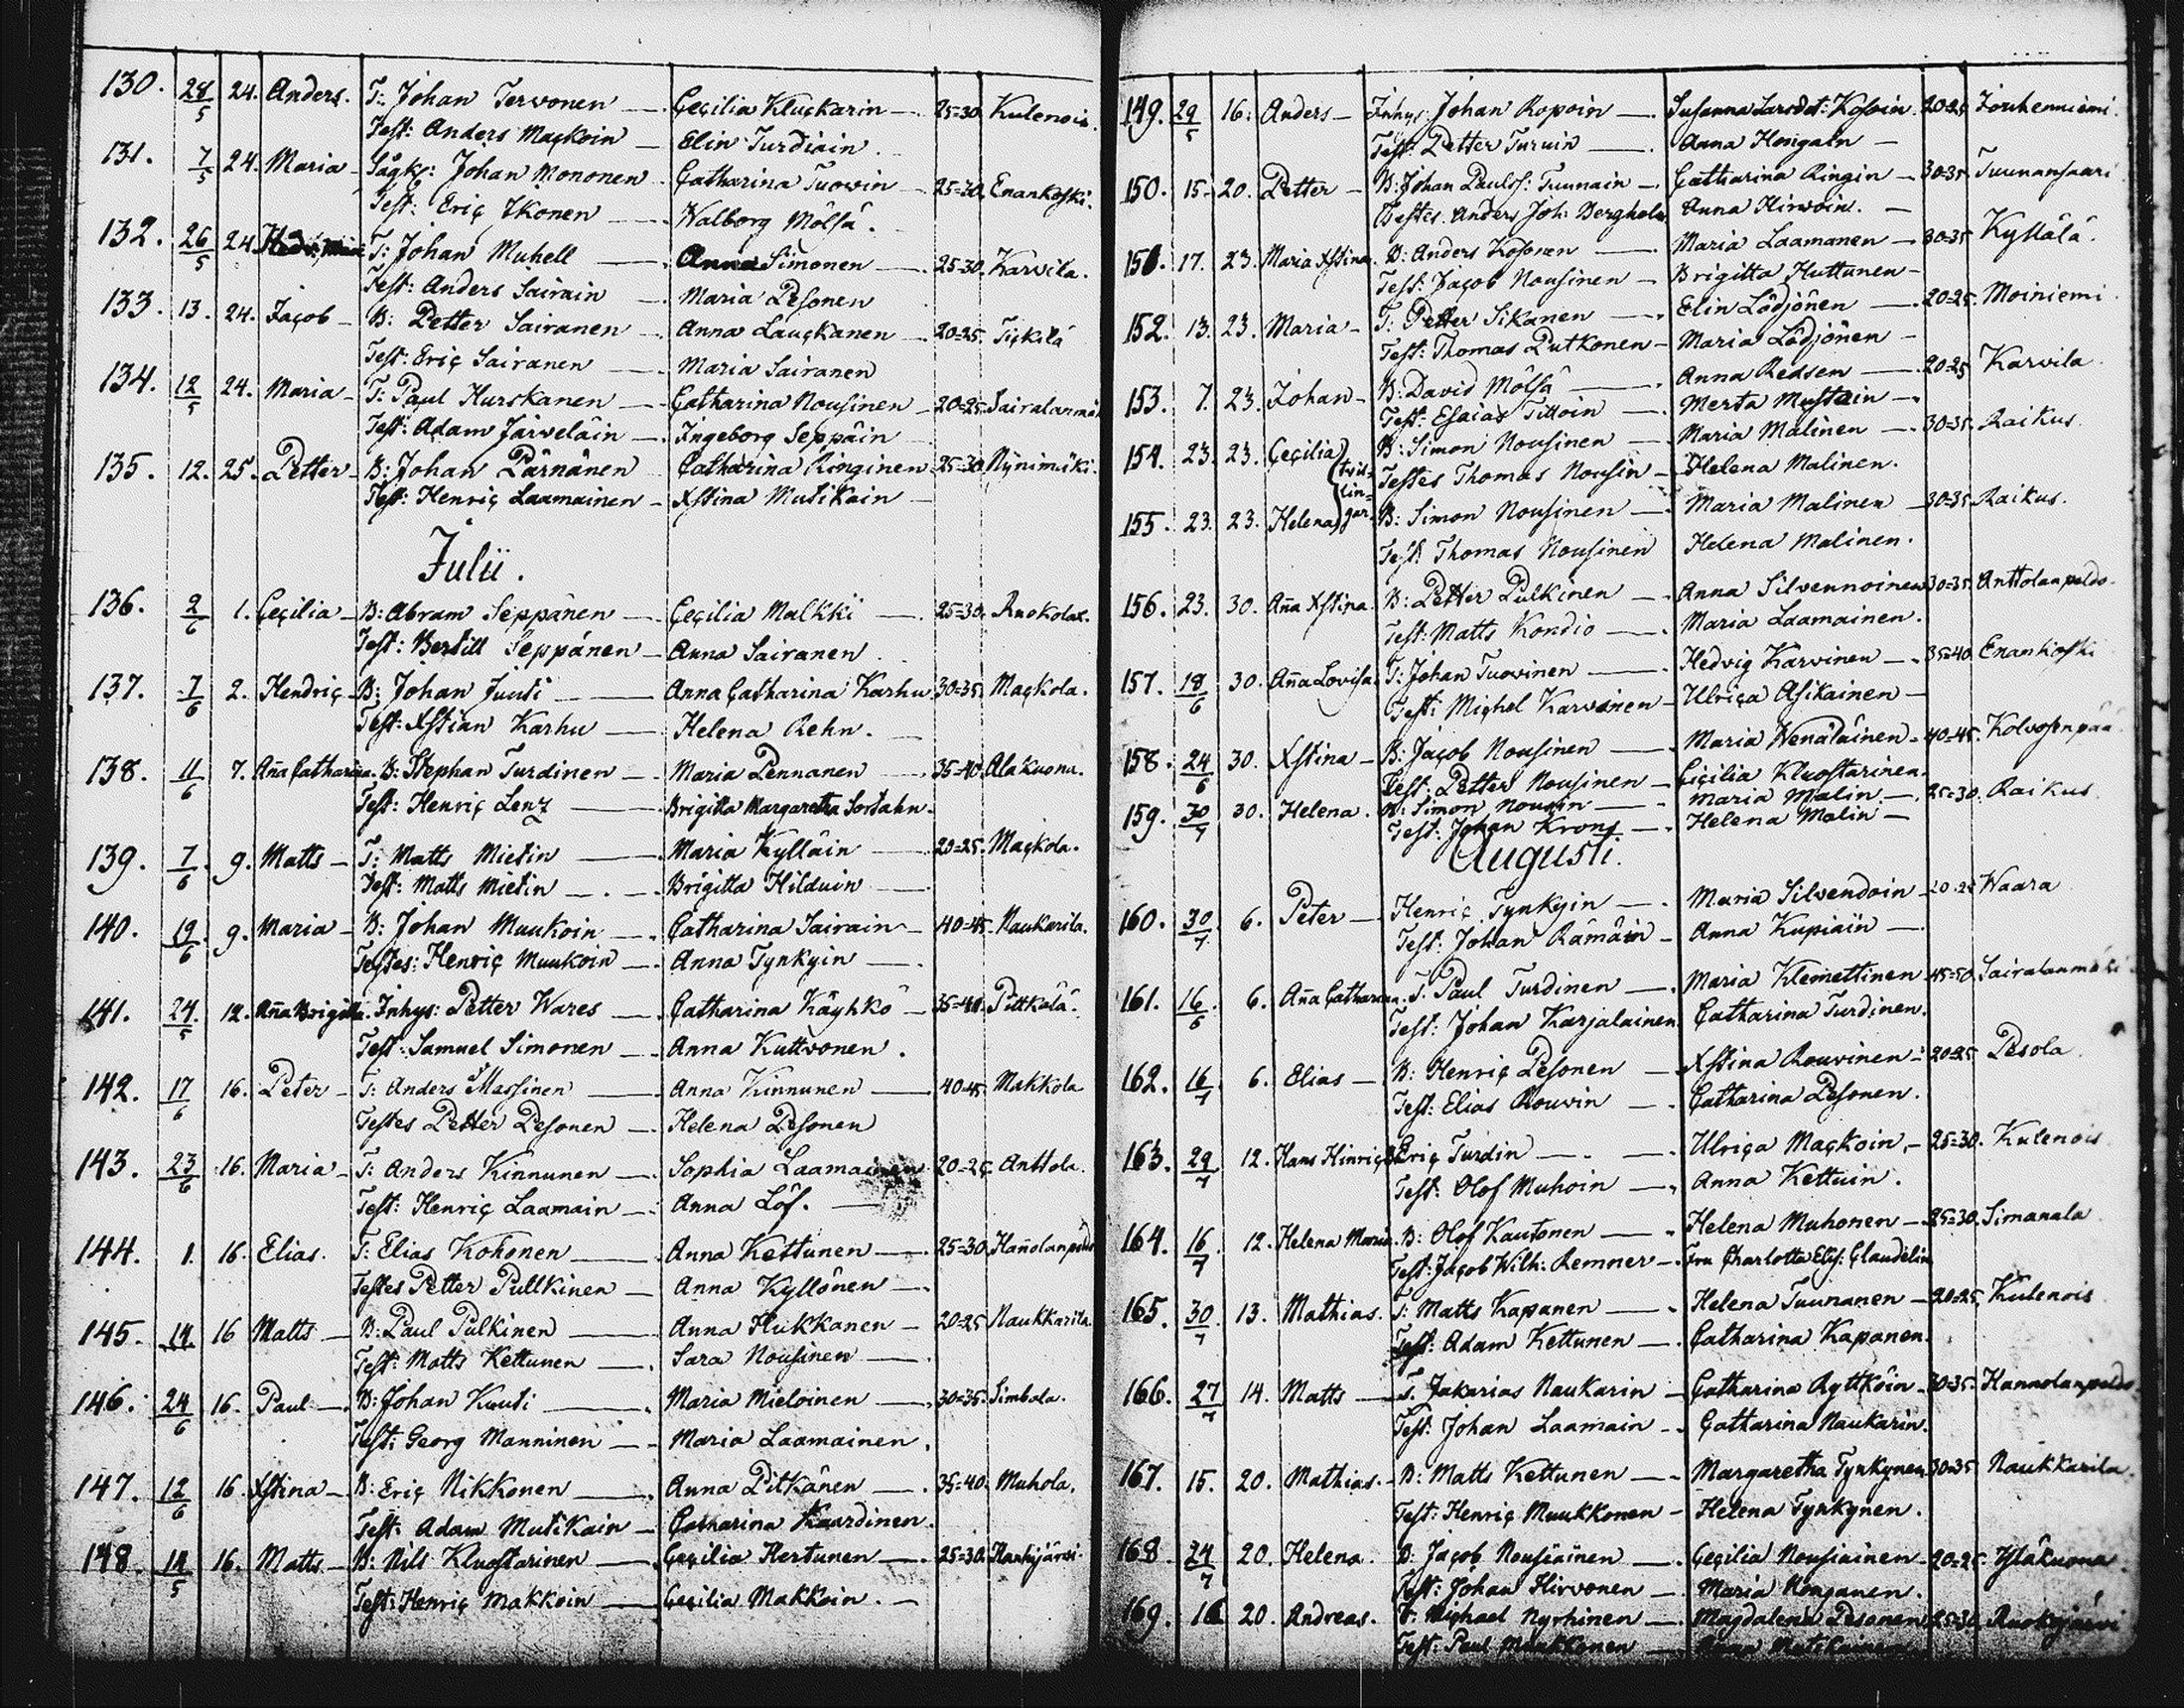 130. 28/5 24. Anders. T: Johan Tervonen — Cecilia Kluckarin — 25=30. Kulenois.
Test: Anders Mackoin — Elin Turdiain.
131. 7/5 24. Maria — Johan Mononen — Catharina Tuowin — 25=30. Enankoski.
Test: Eric Ikonen — Walborg Mölsä.
132. 26/5 24. T: Johan Muhell — Anna Simonen — 25=30. Karvila.
Test: Anders Sairain — Maria Pesonen
133. 13. 24. Jacob — B: Petter Sairanen — Anna Lauckanen — 20=25. Tickilä
Test: Eric Sairanen — Maria Sairanen
134. 12/5 24. Maria — T: Paul Hurskanen — Catharina Nousinen — 20=25.
Test: Adam Järveläin — Ingeborg Seppäin
135. 12. 25. Petter — B: Johan Pärnänen Catharina Ringinen 25=30
Test: Henric Laamainen — Xstina Mutikain —
Julii.
136. 2/6 1. Cecilia — B: Abram Seppänen — Cecilia Malkki — 25=30. Ruokolax.
Test: Bertill Seppänen — Anna Sairanen
137. 7/6 2. Hendric — B: Johan Juuti — Anna Catharina Karhu 30=35. Mackola.
Test: Xstian Karhu — Helena Rehn.
138. 11/6 7. Aña Catharina. B: Stephan Turdinen — Maria Pennanen — 35=40. Alakuona.
Test: Henric Lenz — Brigitta Margaretha
139. 7/6 9. Matts — T: Matts Mietin — Maria Kylläin — 20=25. Mackola.
Test: Matts Mietin — Brigitta Hilduin —
140. 19/6 9. Maria — B: Johan Muukoin — Catharina Sairain — 40=45. Naukarila.
Testes: Henric Muukoin — Anna Tynkyin —
141. 24/5 12. Aña Brigitta. Inhys: Petter Wares — Catharina Käyhkö — 35=40. Pittkälä.
Test: Samuel Simonen — Anna Kuttvonen.
142. 17/6 16. Peter — T: Anders Massinen — Anna Kinnunen — 40=45. Makkola
Testes Petter Pesonen — Helena Pesonen
143. 23/6 16. Maria — T: Anders Kinnunen — Sophia Laamainen 20=25. Anttola.
Test: Henric Laamain — Anna Löf. —
144. 1. 16. Elias. T: Elias Kohonen — Anna Kettunen — 25=30. Hañolanpeldo
Testes Petter Pullkinen — Anna Kyllönen —
145. 14 16 Matts — B: Paul Pulkinen — Anna Hukkanen — 20=25 Naukkarila.
Test: Matts Kettunen — Sara Nousinen —
146. 24/6 16. Paul — B: Johan Kuuti — Maria Mieloinen — 30=35. Simbala.
Test: Georg Manninen — Maria Laamainen.
147. 12/6 16. Xstina — B: Eric Nikkonen — Anna Pitkänen — 35=40. Muhola.
Test: Adam Mutikain — Catharina Kaardinen.
148. 14/5 16. Matts — B: Nils Kluostarinen — Cecilia Hertunen — 25=30.
Test: Henric Makkoin — Cecilia Makkoin. —
149. 29/5 16. Anders — Inhys: Johan Ropoin — Susanna Larsdot: Kosoin. 20=25 Jouhenniemi.
Test: Petter Turuin — Anna Hongain —
150. 15 — 20. Petter — B: Johan Paulss: Tuunain — Catharina Ringin — 30=35. Tuunansaari
Testes. Anders Joh: Bergholm Anna Hirwoin. —
151. 17. 23. Maria Xstina. B: Anders Kosonen — Maria Laamanen — 30=35 Kyllälä.
Test: Jacob Nousinen — Brigitta Huttunen —
152. 13. 23. Maria — T: Petter Sikanen — Elin Lödjönen — 20=25. Moiniemi
Test: Thomas Putkonen — Maria Lödjönen —
153. 7. 23. Johan — B: David Mölsä — Anna Redsen — 20=25 Karvila
Test: Esaias Tittoin — Merta Mustain —
154. 23. 23. Cecilia B: Simon Nousinen — Maria Malinen — 30=35. Raikus.
tvillingar Testes Thomas Nousin — Helena Malinen.
155. 23. 23. Helena B: Simon Nousinen — Maria Malinen — 30=35. Raikus.
Test: Thomas Nousinen Helena Malinen.
156. 23. 30. Aña Xstina. B: Petter Pulkinen — Anna Silvennoinen 30=35. Anttolanpeldo.
Test: Matts Kondio — Maria Laamainen.
157. 18/6 30. Aña Lovisa. T: Johan Tuovinen — Hedvig Karvinen — 35=40. Enankoski
Test: Michel Karvonen — Ulrica Asikainen —
158. 24/6 30. Xstina — B: Jacob Nousinen — Maria Wenäläinen — 40=45.
Test: Petter Nousinen — Cicilia Kluostarinen.
159. 30/7 30. Helena. B: Simon Nousin — Maria Malin — 25=30. Raikus.
Test: Johan Krons — Helena Malin —
Augusti.
160. 30/7 6. Peter — Henric Tynkyin — Maria Silvendoin — 20=25 Waara
Test: Johan Rämäin — Anna Kupiain —
161. 16/6 6. Aña Catharina. T. Paul Turdinen — Maria Klemettinen 45=50. Sairalanmäki
Test: Johan Karjalainen. Catharina Turdinen.
162. 16/7 6. Elias — B: Henric Pesonen — Xstina Rouvinen — 20=25 Pesola.
Test: Elias Rouvin — Catharina Pesonen.
163. 29/7 12. Hans Hinric Eric Turdin — Ulrica Mackoin, — 25=30. Kulenois
Test: Olof Muhoin — Anna Kettuin.
164. 16/7 12. Helena Maria. B: Olof Kautonen — Helena Muhonen — 25=30. Simanala
Test: Jacob Wilh: Remner — Fru Charlotta Elis: Claudelin
165. 30/7 13. Mathias. T: Matts Kapanen — Helena Tuunanen — 20=25. Kulenois
Test: Adam Kettunen — Catharina Kapanen.
166. 27/7 14. Matts — T. Zakarias Naukarin — Catharina Ryttköin — 30=35. Hannolanpeldo.
Test: Johan Laamain — Catharina Naukarin.
167. 15. 20. Mathias. — B: Matts Kettunen — Margaretha Tynkynen 30=35 Naukkarila.
Test: Henric Muukkonen — Helena Tynkynen.
168 24/7 20. Helena B: Jacob Nousiainen — Cecilia Nousiainen — 20=25. Yläkuona
Test: Johan Hirvonen — Maria Konganen.
169. 16 20. Andreas. T: Michael Nyrhinen — Magdalena Pesonen 25=30. Ruokojärvi
Test: Paul Muukkonen — Anna